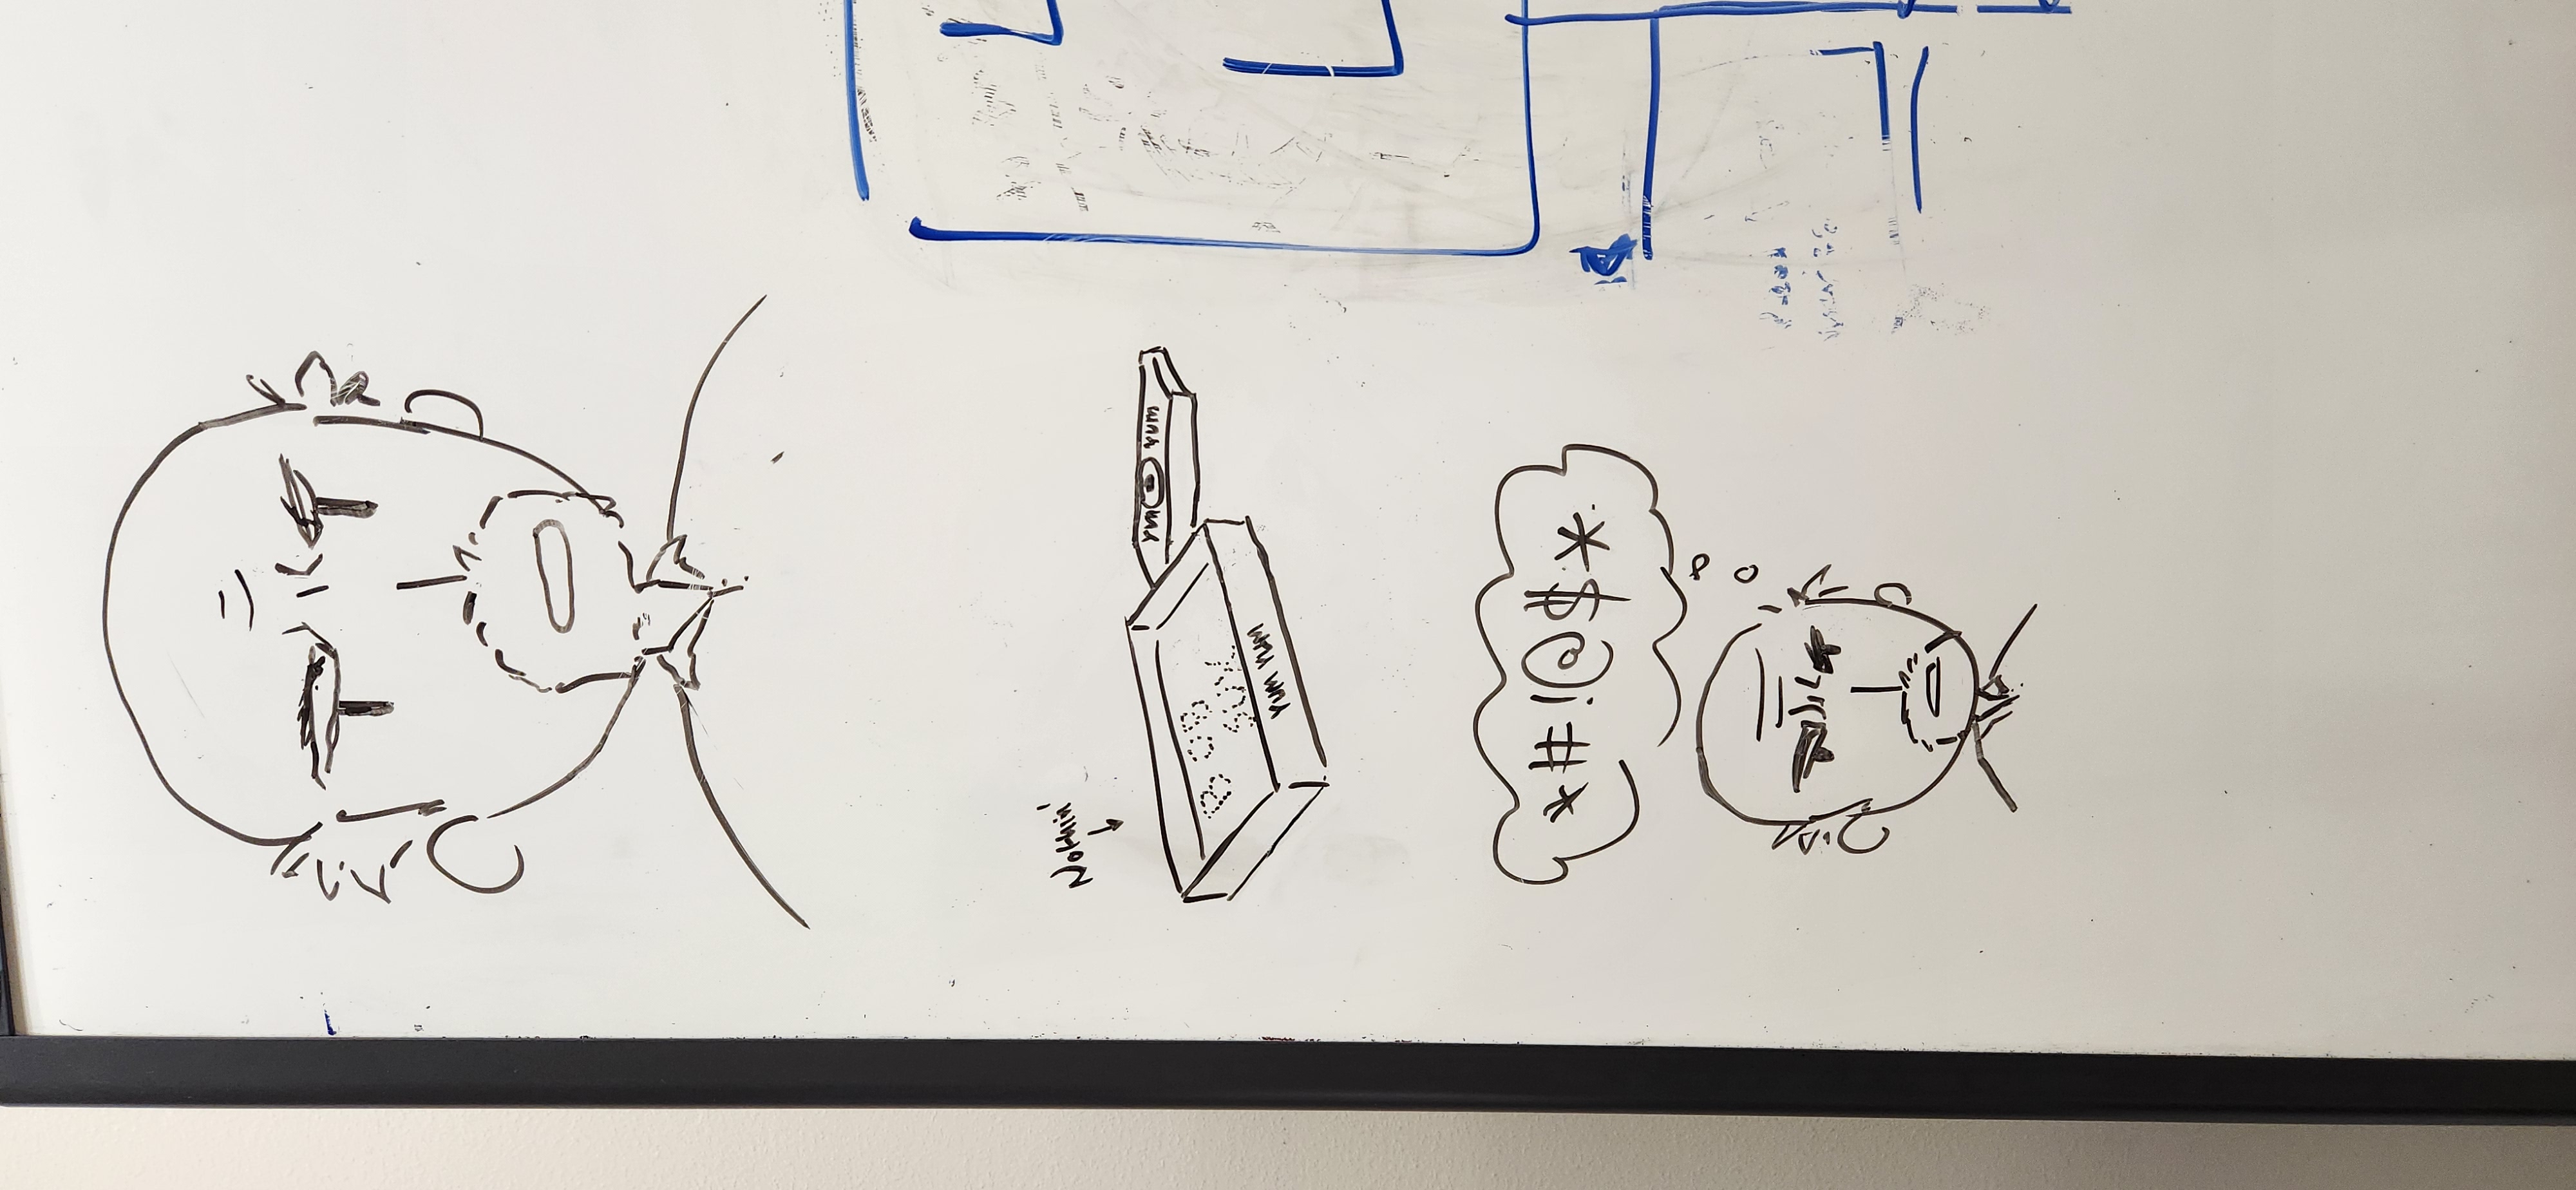 Nothin'
YUM YUM
BOB
SUX
YUM YUM
*#!@$*